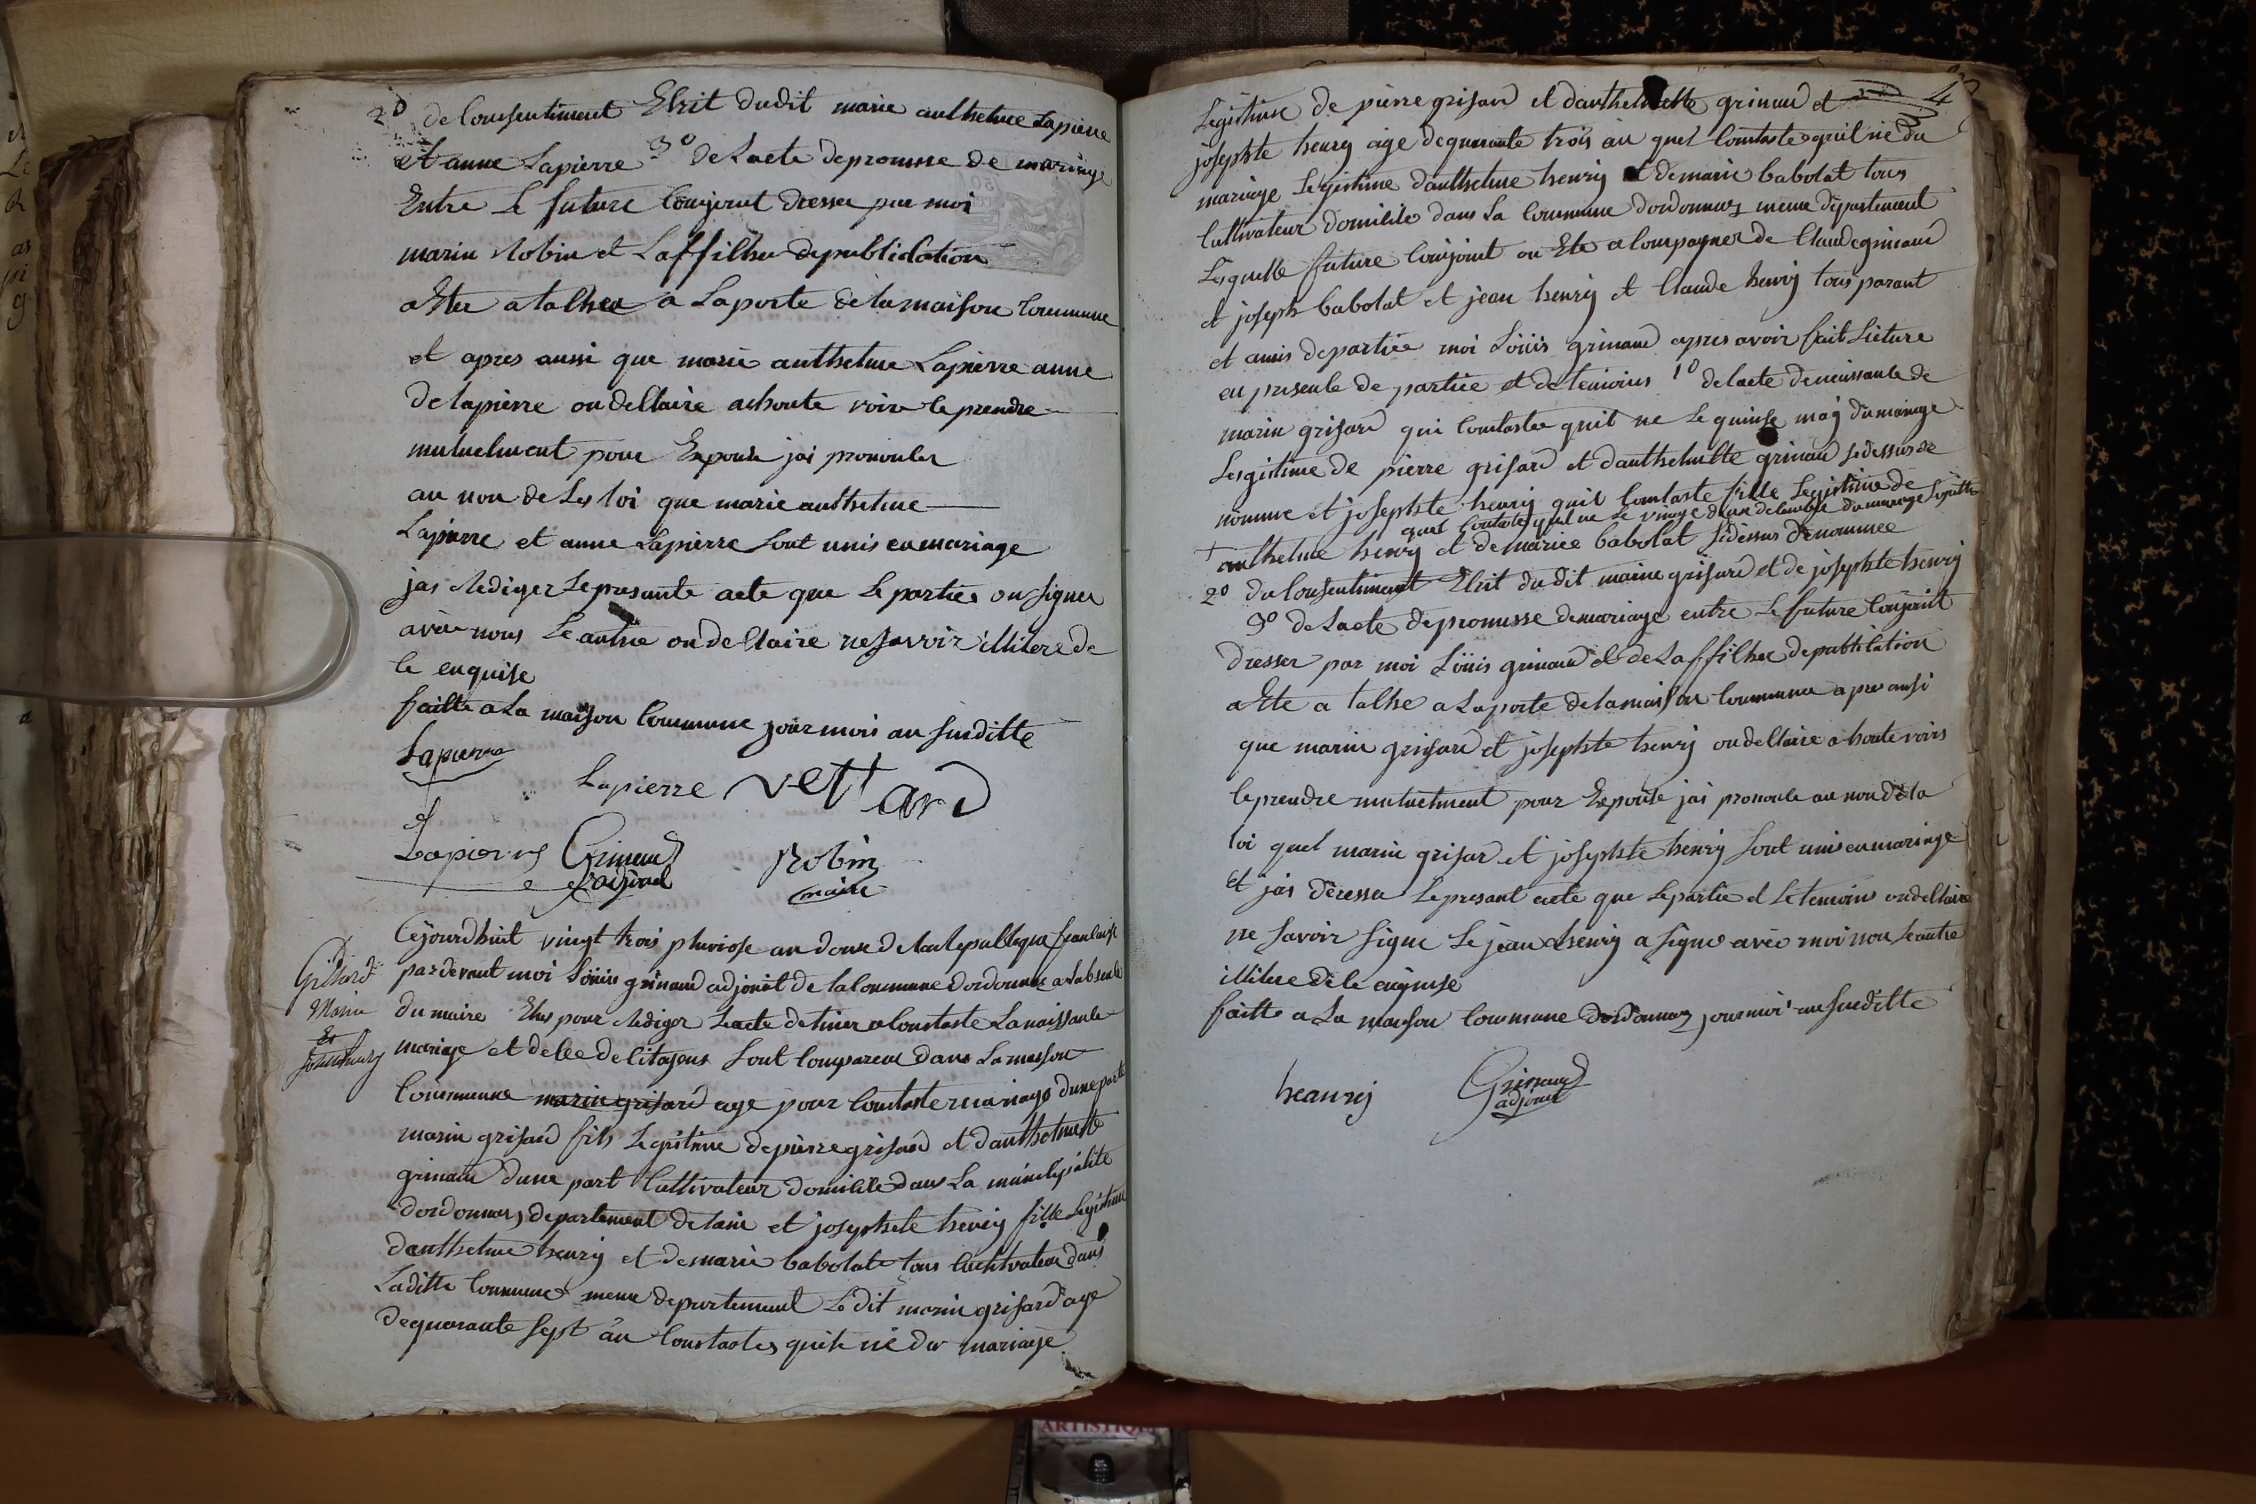 2° de Consentiment Ekrit dudit marie anthelme Lapierre
et anne Lapierre 3° de Lacte de promisse de mariage
Entre Le future Conjoint dresser par moi
marin Robin et Laffilher de publication
a Eter a talher a La porte de la maison Commune
et apres aussi que marie anthelme Lapierre anne
de lapierre on declaire a haute voire le prendre
mutuelment pour Epouse jai prononcer
au non de Les loi que marie anthelme
Lapierre et anne Lapierre sont unis en mariage
jai Rediger Le presante acte que Le partie on signer
avec nous Le autre on declaire ne savoir illitere de
le enquise
faitte a La maison Commune jour mois an susditte
Lapierre
Lapierre vettard
Lapierre Grinand adjoint Robin maire
Grisard Marin et
Cejourdhuit vingt trois pluviose an douse de la Republique francaise
par devant moi Louis grinand adjoint de la Commune dordonnas a Labsence
du maire Elus pour Rediger Lacte detiner a Constaste La naissance
mariage et decee de Citoyens sont Comparene dans La maison
Commune marin grisard age pour Constaste mariage dune parte
marin grisard fils Legitime de pierre grisard et danthelmette
grinand dune part Cultivateur domicile dans La municipalite
dordonnas departement de lain et josephete henrij fille Legitime
danthelme henrij et de marie babolat tous Cultivateur dans
Laditte Commune meme departement Le dit marin grisard age
de quarante sept an Constastes quil né du mariage
Legitime de pierre grisard et danthelmette grinand et
josephte henrij age de quarante trois an quel Constaste quil né du
mariage Legitime danthelme henrij et de marie babolat tous
Cultivateur domicile dans La Commune dordonnas meme departement
Lesquelle future Conjoint on Ete acompagner de Claude grinand
et joseph babolat et jean henrij et Claude henrij tous parant
et amis de partiee moi Louis grinand apres avoir fait Licture
en presence de partiee et de temoins 1° de lacte de naissance de
marin grisard qui Constaste quil ne Le quinse maij du mariage
Lesgitime de pierre grisard et danthelmette grinand sidessus de
nomme et josephte henrij quil Constaste fille Legitime de
quel Constaste quel ne Le vingt deux decembre du mariage Legitime
+ anthelme henrij et de mariee babolat sidessus denommee
2° du Consentiment Ekrit dudit marin grisard et de josephte henrij
3° de Lacte de promisse de mariage entre Le future Conjoint
dresser par moi Louis grinand et de Laffilher de publication
a Ete a talhe a La porte de la maison Commune apres ausi
que marin grisard et josephte henrij on declaire a haute voix
le prendre mutuelment pour Epouse jai prononce au non de la
loi quel marin grisard et josephte henrij sont unis en mariage
et jai deresser Le presant acte que Le partie et Le temoins on declaire
ne savoir signe Le jean henrij a signe avec moi non Le autre
illitere de le enquise
faitte a La maison Commune dordonnas jour moi an susditte
heanrij Grinand adjoint